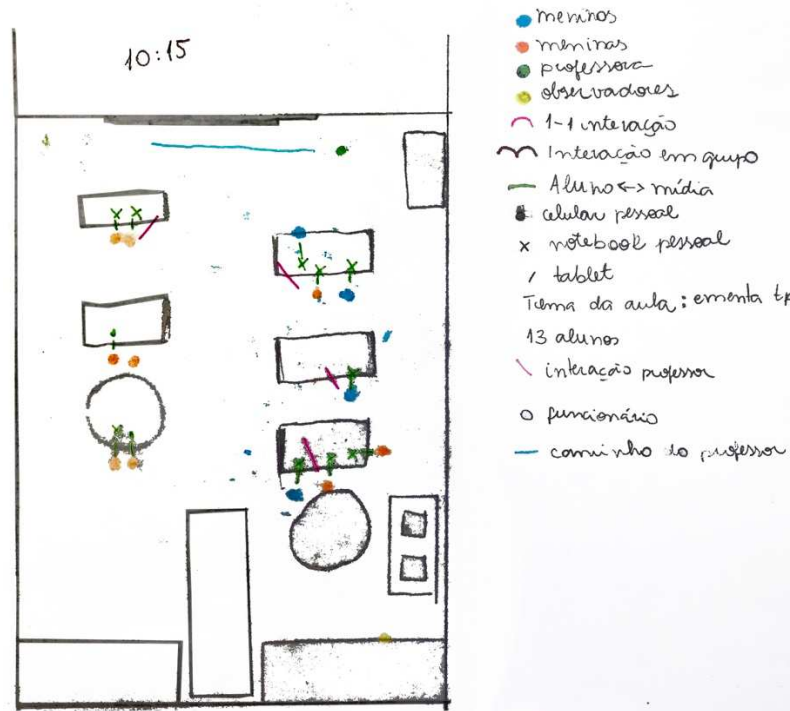 10:15
meninos
meninas
professora
observadores
1-1 interação
Interação em grupo
Aluno <-> mídia
celular pessoal
x notebook pessoal
/ tablet
Tema da aula: ementa
13 alunos
interação professor
funcionário
caminho do professor